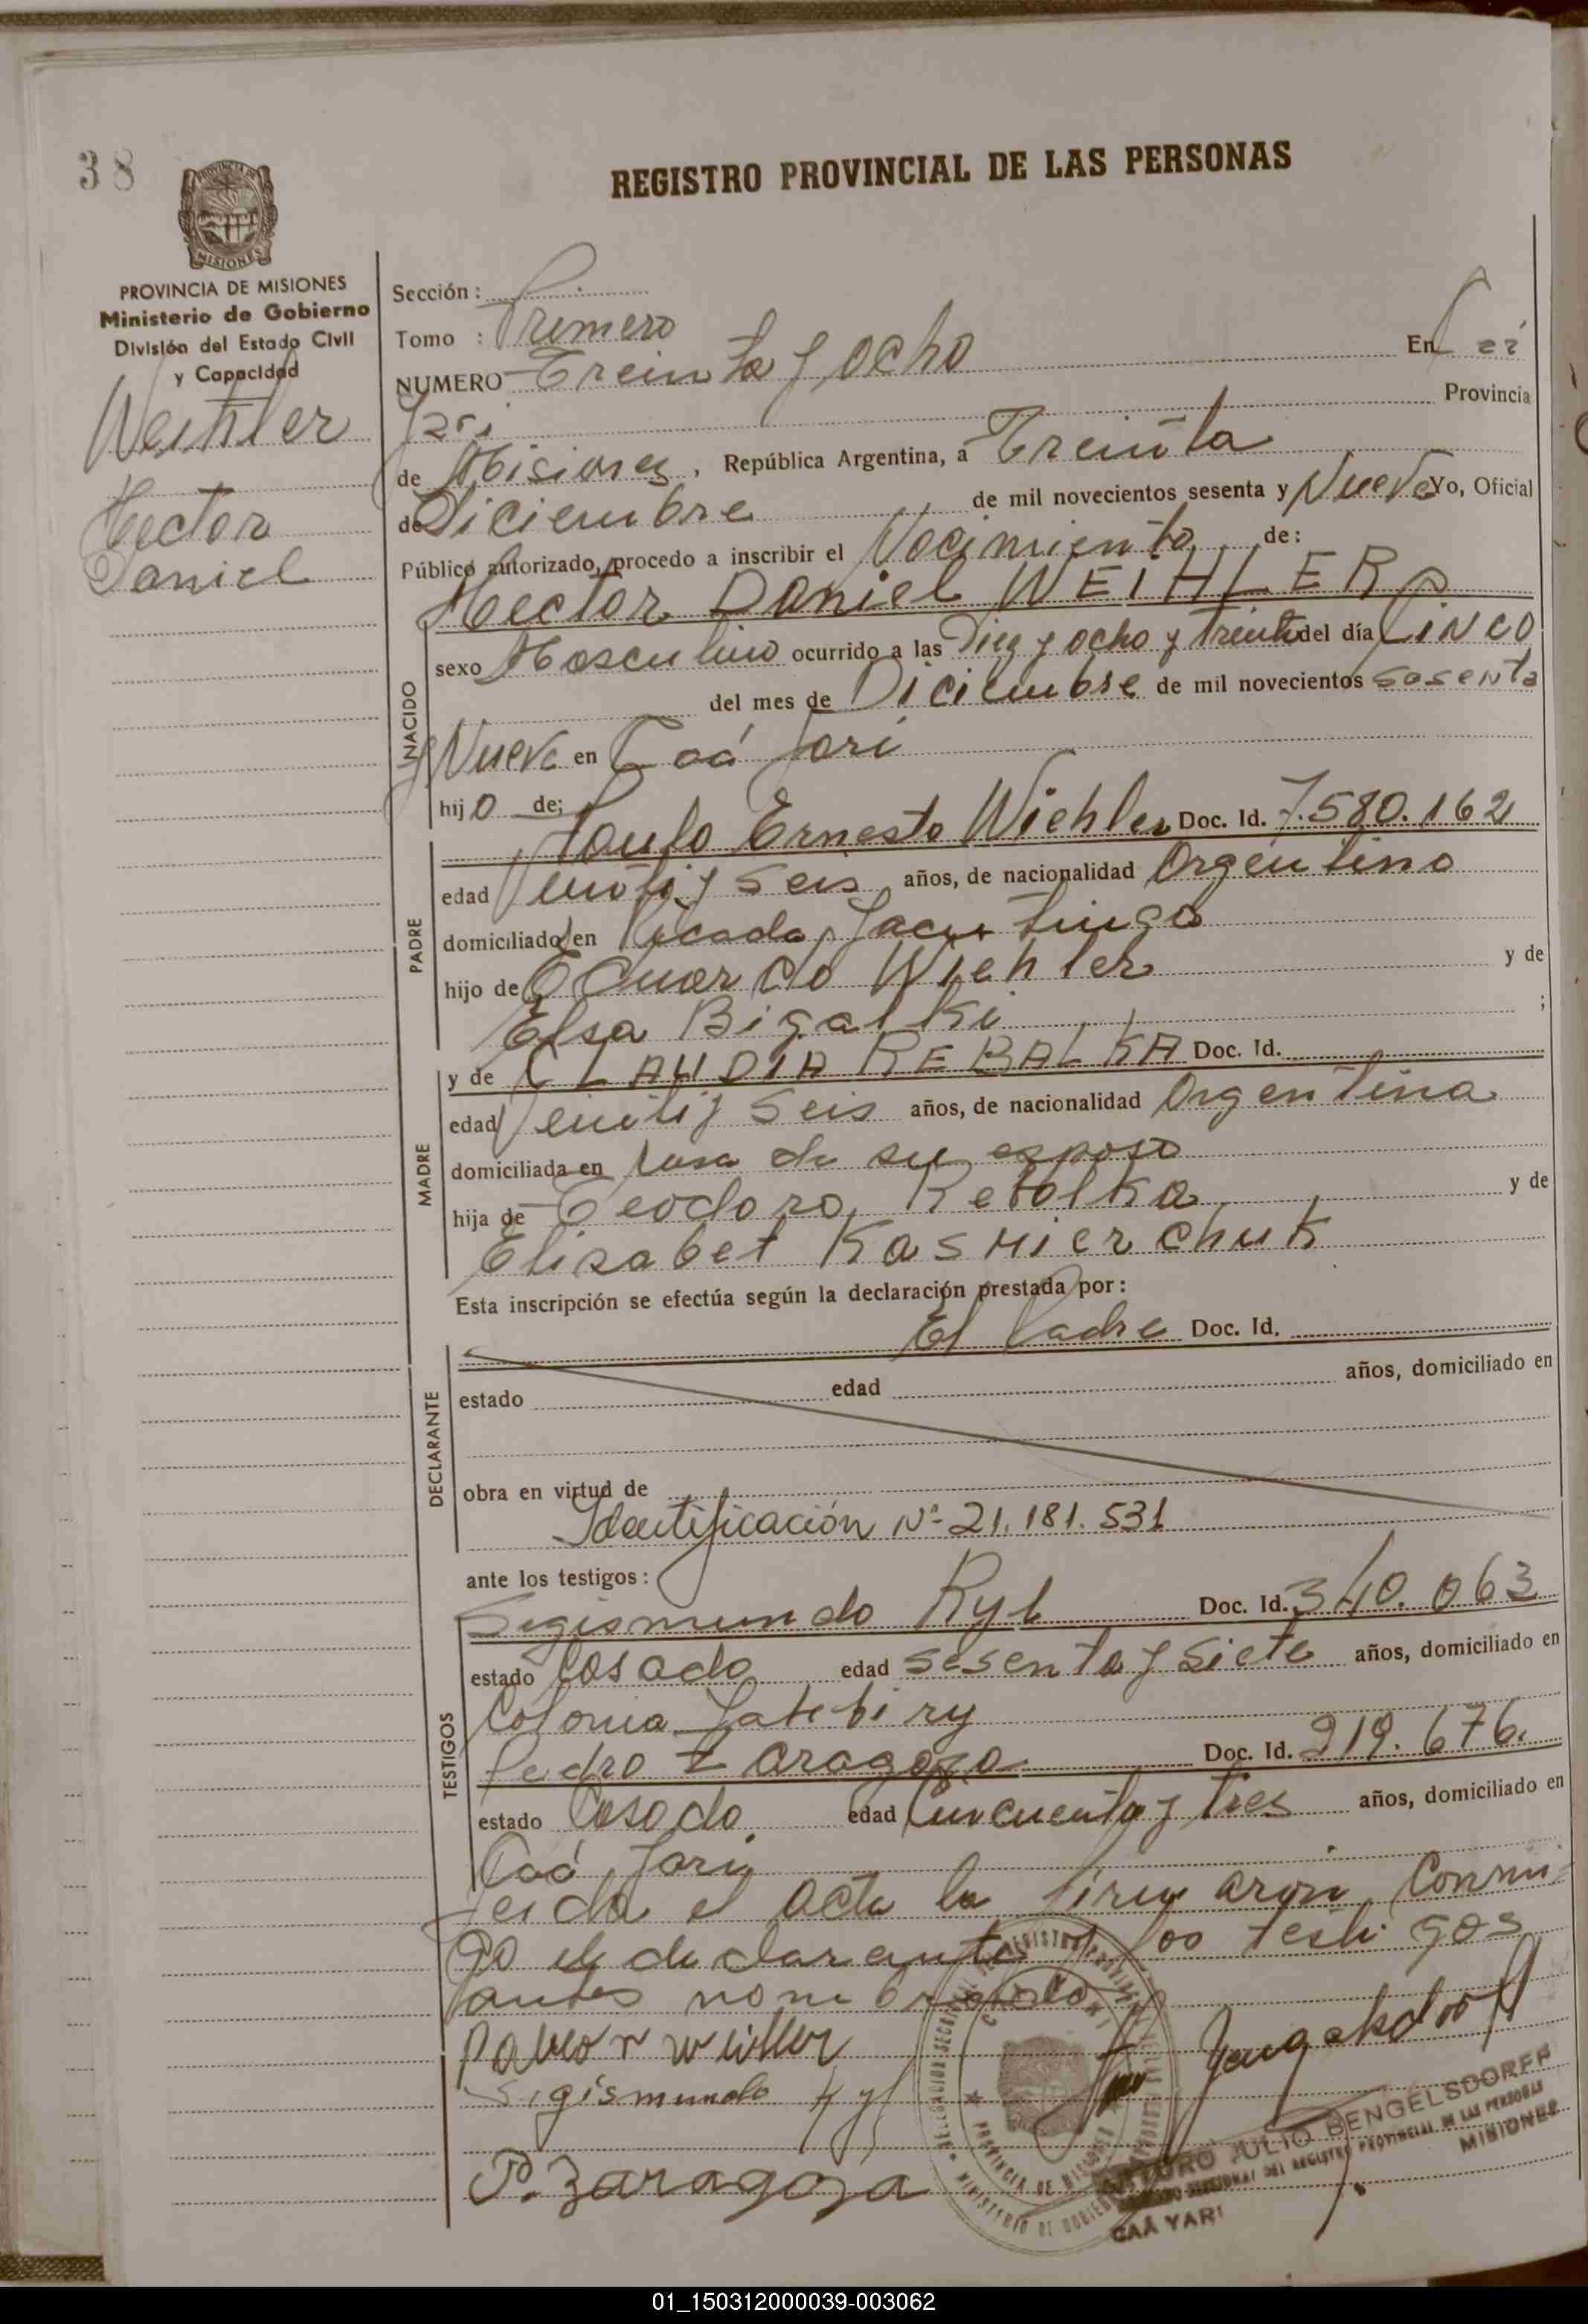 38
REGISTRO PROVINCIAL DE LAS PERSONAS
MISIONES
PROVINCIA DE MISIONES
Ministerio de Gobierno
División del Estado Civil
y Capacidad
Weihler
Hector
Daniel
Sección :
Tomo : Primero
NUMERO Treinta y ocho En Caá
Yari Provincia
de Misiones, República Argentina, a Treinta
de Diciembre de mil novecientos sesenta y Nueve Yo, Oficial
Público autorizado, procedo a inscribir el Nacimiento de:
Hector Daniel WEIHLER
NACIDO
sexo Masculino ocurrido a las Diez y ocho y treinta del día Cinco
del mes de Diciembre de mil novecientos sesenta
y Nueve en Caá Yari
hijo de;
Paulo Ernesto Wiehler Doc. Id. 7.580.162
PADRE
edad Veinti y Seis años, de nacionalidad Argentino
domiciliado en Picada Jacutinga
hijo de Eduardo Wiehler y de
Elsa Bigalki ;
MADRE
y de CLAUDIA REBALKA Doc. Id.
edad Veinti y Seis años, de nacionalidad Argentina
domiciliada en casa de su esposo
hija de Teodoro Rebalka y de
Elisabet Kasmierchuk
Esta inscripción se efectúa según la declaración prestada por:
El Padre Doc. Id.
DECLARANTE
estado edad años, domiciliado en
obra en virtud de
Identificación Nº 21.181.531
ante los testigos:
TESTIGOS
Segismundo Ryl Doc. Id. 340.063
estado Casado edad sesenta y siete años, domiciliado en
Colonia
Pedro Zaragoza Doc. Id. 219.676.
estado Casado edad Cincuenta y tres años, domiciliado en
Caá Yari
Leida el acta la firmaron Conmi
go el declarante y los testigos
antes nombrados
Sigismundo Ryl
P. Zaragoza
PROVINCIA DE MISIONES
ARTURO JULIO BENGELSDORFF
DEL REGISTRO PROVINCIAL DE LAS PERSONAS
MISIONES
CAÁ YARI
01_150312000039-003062